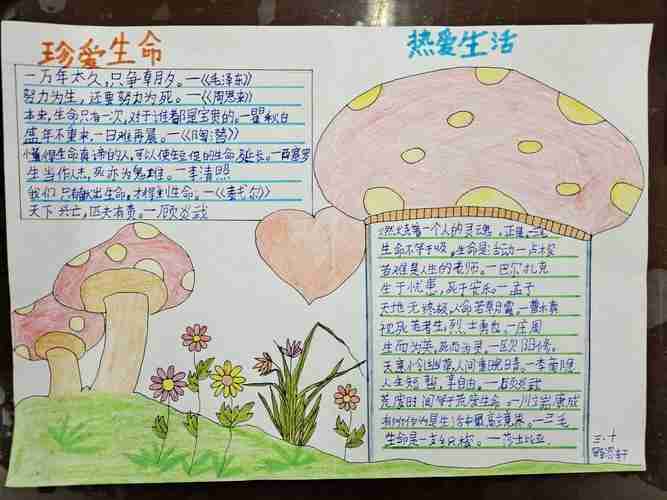 珍爱生命
热爱生活
一万年太久,只争朝夕。—《毛泽东》
努力为生,还要努力为死。—《周恩来》
本来,生命只有一次,对于谁都是宝贵的。—瞿秋白
盛年不重来,一日难再晨。—《陶潜》
懂得生命真谛的人,可以使短促的生命延长。—西塞罗
生当作人杰,死亦为鬼雄。—李清照
我们只有献出生命,才得到生命。—《泰戈尔》
天下兴亡,匹夫有责。—顾炎武
燃烧着一个人的灵魂,正是
生命不等于呼吸,生命是活动—卢梭
苦难是人生的老师。—巴尔扎克
生于忧患,死于安乐。—孟子
天地无终极,人命若朝霜。—曹子建
视死若生者,烈士勇也。—庄周
生而为英,死而为灵。—欧阳修
人生短暂,享自由。—
荒废时间等于荒废生命。—川端康成
—三毛
生命是一支蜡烛。—莎士比亚
三.十